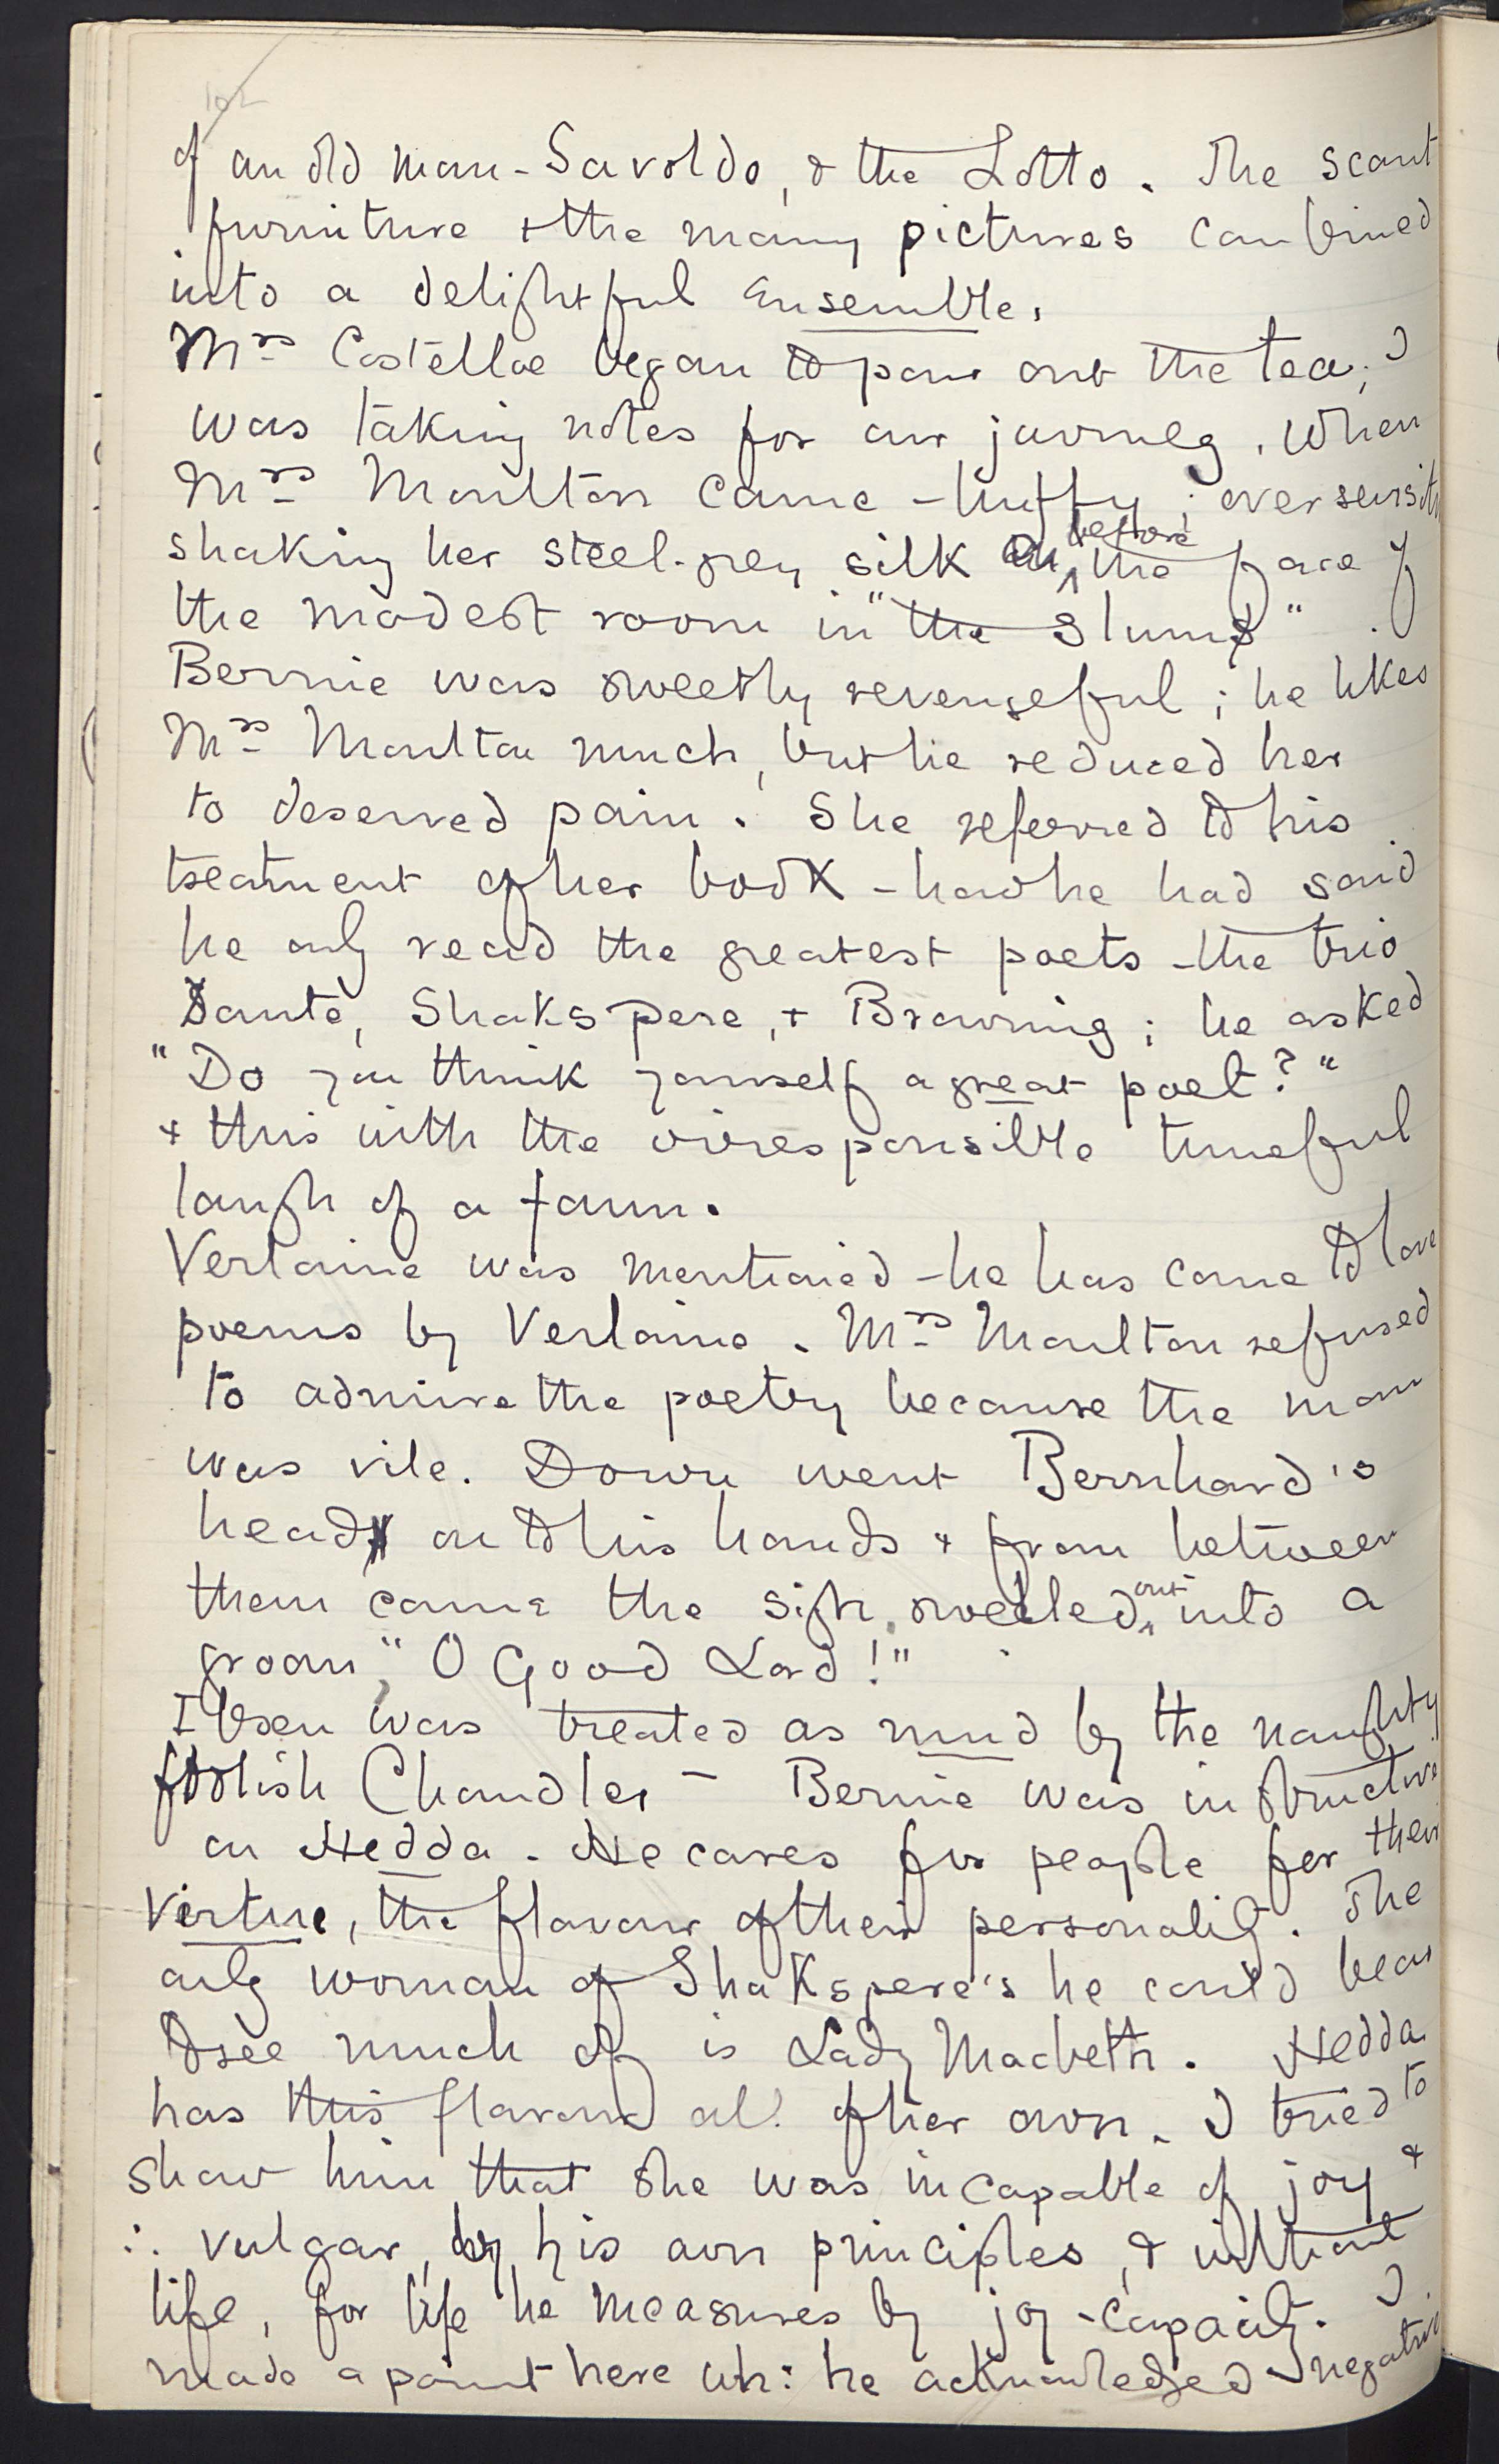 102
of an old man - Savoldo, & the Lotto. The scant
furniture & the many pictures combined
into a delightful ensemble.
Mrs Costelloe began to pour out the tea; I
was taking notes for our journey. When
Mrs Moulton came - huffy; oversensitive
shaking her steel-grey silk in before the face of
the modest room in "the slums".
Bernie was sweetly revengeful; he likes
Mrs Moulton much, but he reduced her
to deserved pain. She referred to his
treatment of her book - how he had said
he only read the greatest poets - the trio
Dante, Shakspere, & Browning; he asked
"Do you think yourself a great poet?"
& this with the irresponsible tuneful
laugh of a faun.
Verlaine was mentioned - he has come to love
poems by Verlaine. Mrs Moulton refused
to admire the poetry because the man
was vile. Down went Bernhard's
head on to his hands & from between
them came the sigh, swelled out into a
groan, "O Good Lord!"
Ibsen was treated as mud by the naughty
foolish Chandler - Bernie was instructive
on Hedda. He cares for people for their
virtue, the flavour of their personality. The
only woman of Shakspere's he could bear
to see much of is Lady Macbeth. Hedda
has this flavour all of her own. I tried to
show him that she was incapable of joy &
∴ vulgar, by his own principles, & without
life, for life he measures by joy-capacity. I
made a point here wh: he acknowledged negative